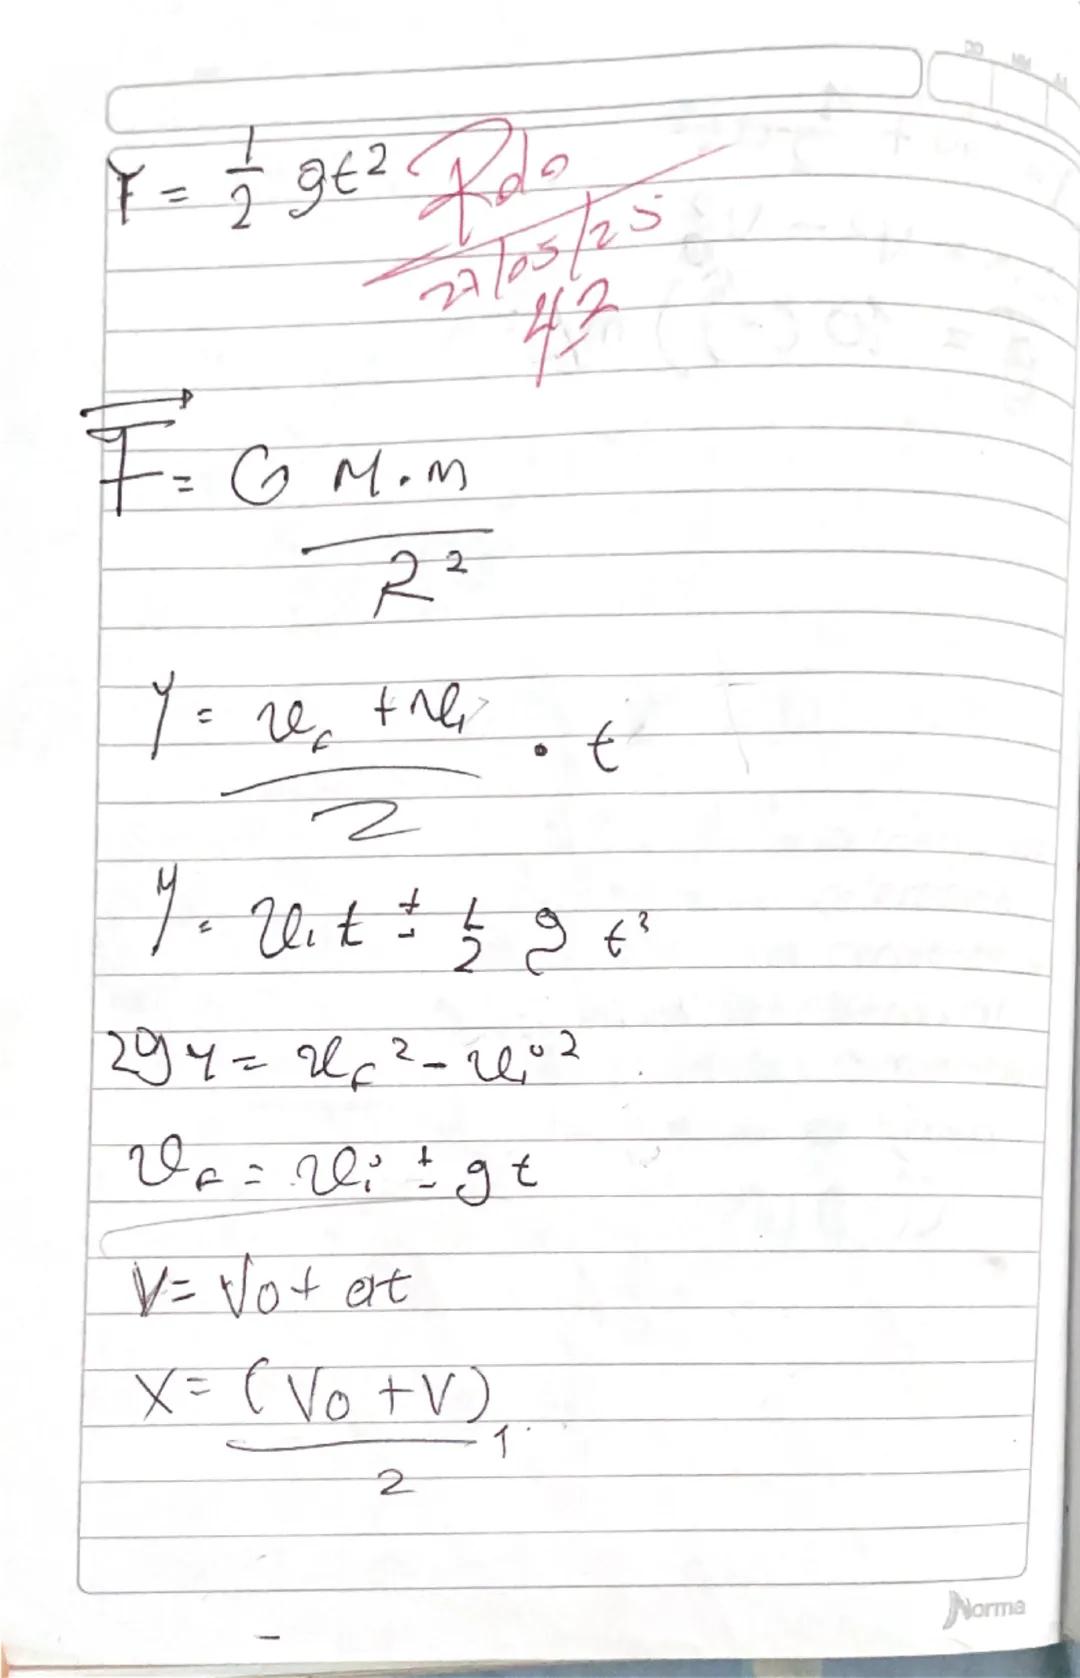 Y = 1/2 gt²
Rdo
27/05/25
42
F = G M.m / R²
Y = vf + vi / 2 . t
Y = vi t ± 1/2 g t²
2gy = vf² - vi²
vf = vi ± gt
V = Vo + at
X = (Vo + V) / 2
Norma